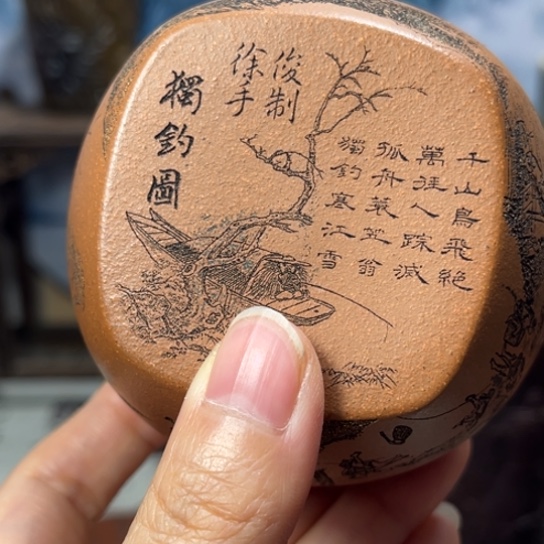 千山鳥飛絕
萬徑人踪滅
孤舟蓑笠翁
獨釣寒江雪
徐俊
手制
獨釣圖